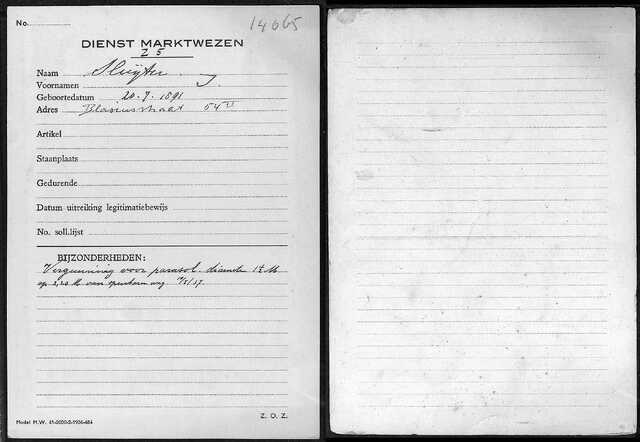 No.
14665
DIENST MARKTWEZEN
Z 5
Naam Sluyter
Voornamen J
Geboortedatum 20.7.1891
Adres Blasiusstraat 54 II
Artikel
Staanplaats
Gedurende
Datum uitreiking legitimatiebewijs
No. soll.lijst
BIJZONDERHEDEN:
Vergunning voor parasol. diameter
op 2,20 M van openbare weg /37
Model M.W. 41-5000-2-1936-484
Z. O. Z.